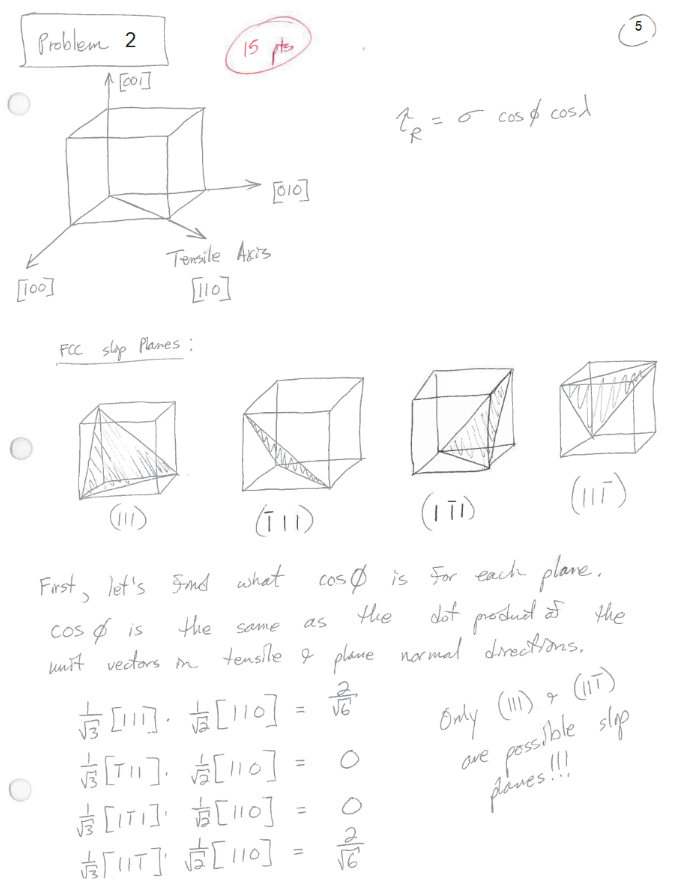 Problem 2
15 pts
5
[001]
τ_R = σ cosϕ cosλ
[010]
Tensile Axis
[100]
[110]
FCC slip Planes:
(111)
(1̅11)
(11̅1)
(111̅)
First, let's find what cosϕ is for each plane.
cosϕ is the same as the dot product of the
unit vectors in tensile & plane normal directions.
1/√3 [111] · 1/√2 [110] = 2/√6
1/√3 [1̅11] · 1/√2 [110] = 0
1/√3 [11̅1] · 1/√2 [110] = 0
1/√3 [111̅] · 1/√2 [110] = 2/√6
Only (111) & (111̅)
are possible slip
planes!!!